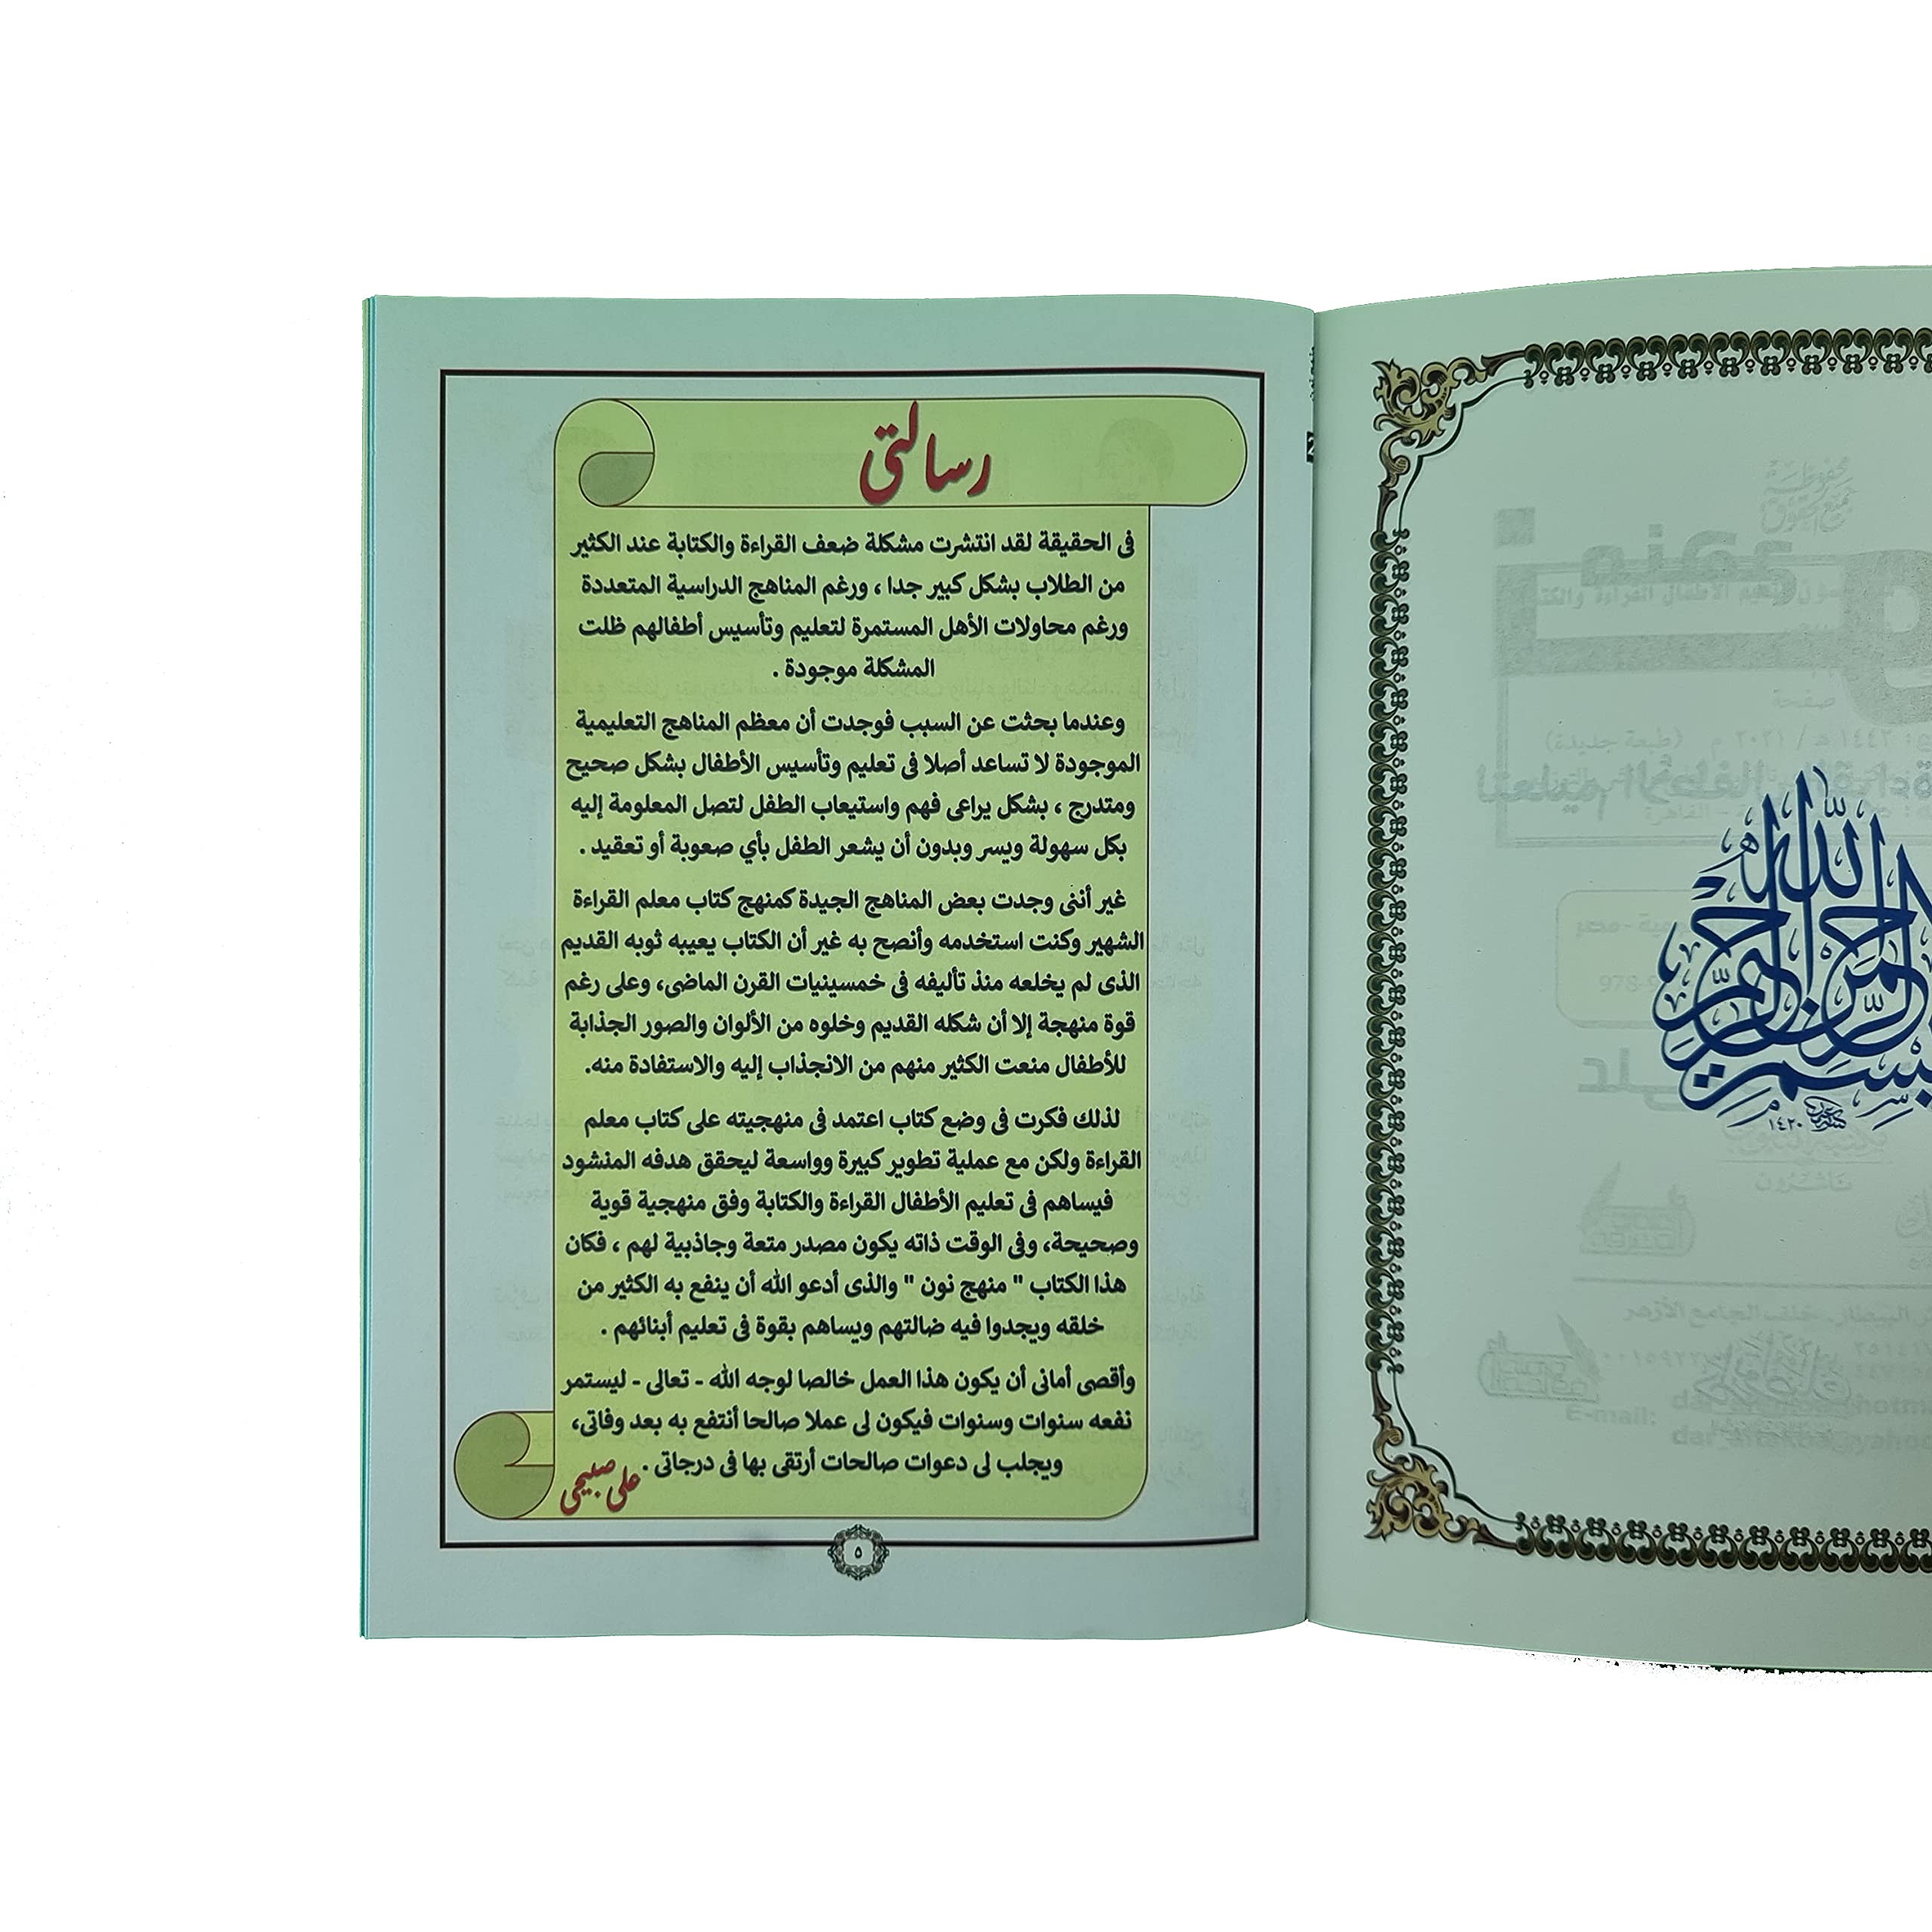 رسالتى
فى الحقيقة لقد انتشرت مشكلة ضعف القراءة والكتابة عند الكثير
من الطلاب بشكل كبير جدا ، ورغم المناهج الدراسية المتعددة
ورغم محاولات الأهل المستمرة لتعليم وتأسيس أطفالهم ظلت
المشكلة موجودة .
وعندما بحثت عن السبب فوجدت أن معظم المناهج التعليمية
الموجودة لا تساعد أصلا فى تعليم وتأسيس الأطفال بشكل صحيح
ومتدرج ، بشكل يراعى فهم واستيعاب الطفل لتصل المعلومة إليه
بكل سهولة ويسر وبدون أن يشعر الطفل بأي صعوبة أو تعقيد .
غير أننى وجدت بعض المناهج الجيدة كمنهج كتاب معلم القراءة
الشهير وكنت استخدمه وأنصح به غير أن الكتاب يعيبه ثوبه القديم
الذى لم يخلعه منذ تأليفه فى خمسينيات القرن الماضى، وعلى رغم
قوة منهجة إلا أن شكله القديم وخلوه من الألوان والصور الجذابة
للأطفال منعت الكثير منهم من الانجذاب إليه والاستفادة منه.
لذلك فكرت فى وضع كتاب اعتمد فى منهجيته على كتاب معلم
القراءة ولكن مع عملية تطوير كبيرة وواسعة ليحقق هدفه المنشود
فيساهم فى تعليم الأطفال القراءة والكتابة وفق منهجية قوية
وصحيحة، وفى الوقت ذاته يكون مصدر متعة وجاذبية لهم ، فكان
هذا الكتاب " منهج نون " والذى أدعو الله أن ينفع به الكثير من
خلقه ويجدوا فيه ضالتهم ويساهم بقوة فى تعليم أبنائهم .
وأقصى أمانى أن يكون هذا العمل خالصا لوجه الله - تعالى - ليستمر
نفعه سنوات وسنوات فيكون لى عملا صالحا أنتفع به بعد وفاتى،
ويجلب لى دعوات صالحات أرتقى بها فى درجاتى .
على صبيحى
٥
بسم الله الرحمن الرحيم
١٤٢٠